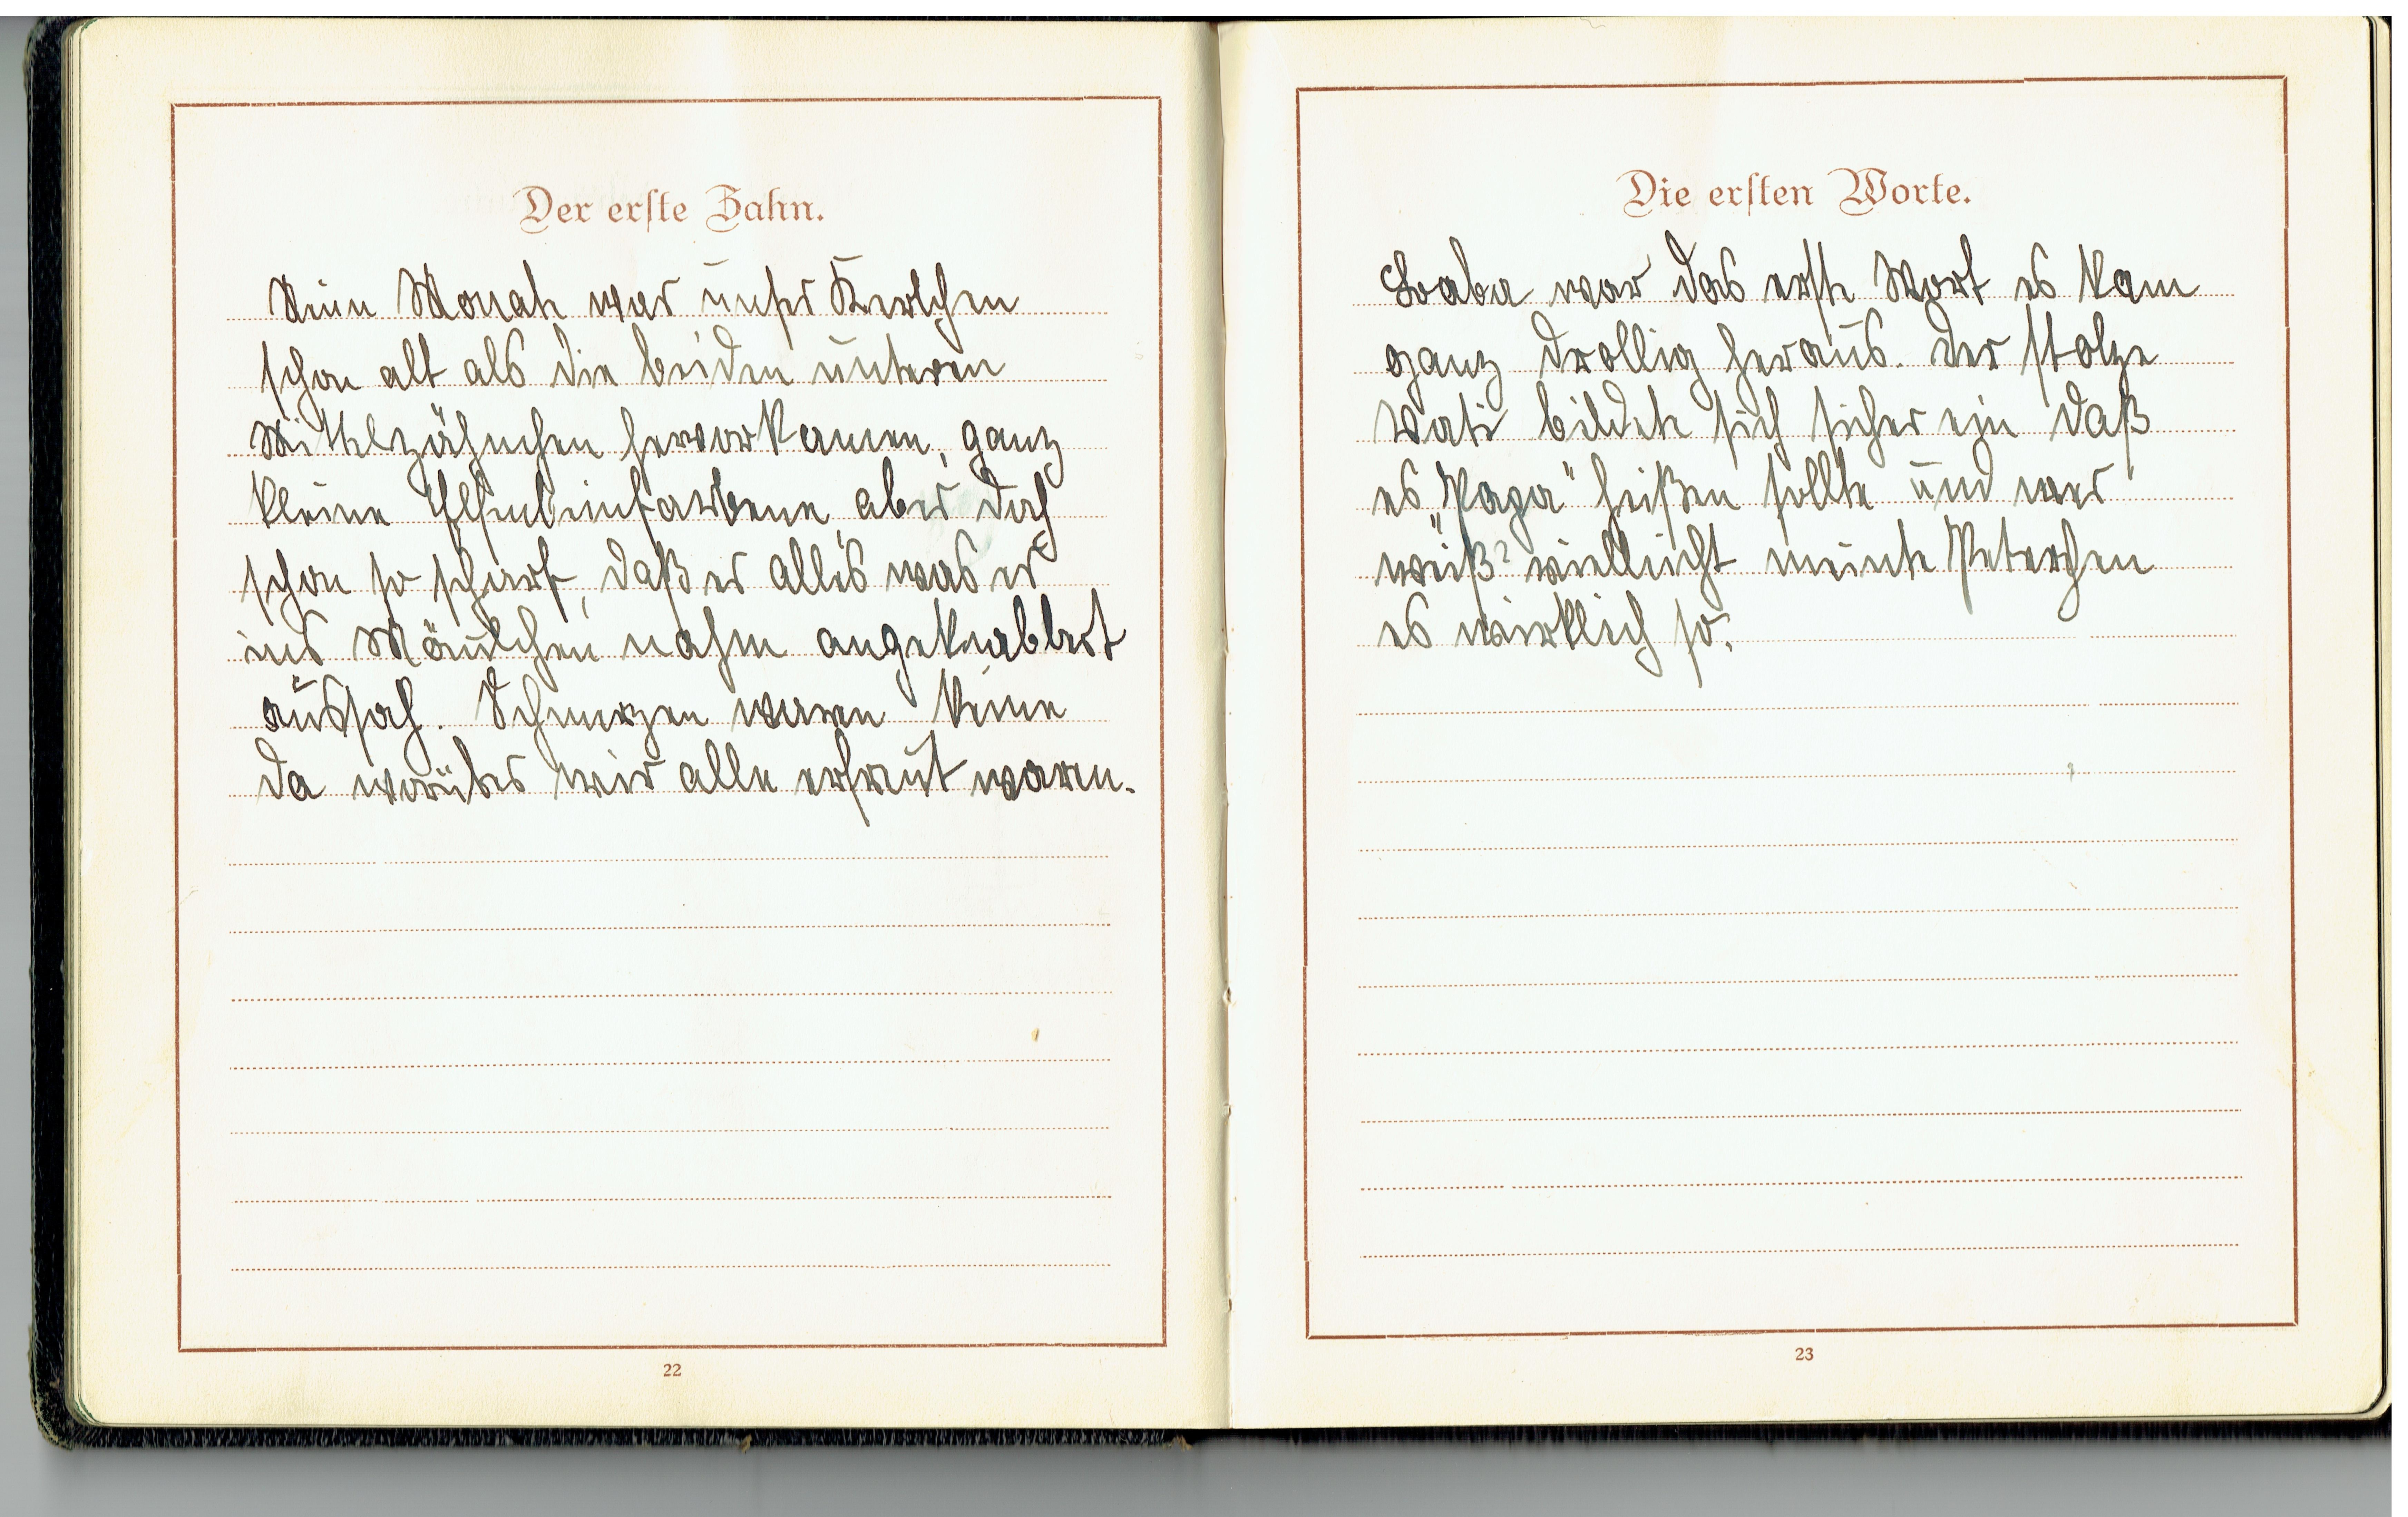 Der erste Zahn.
Neun Monate war unser Kerlchen
schon alt als die beiden unteren
Mittelzähnchen hervorkamen, ganz
kleine Elfenbeinfarbene aber doch
schon so scharf, daß es alles was er
ins Mäulchen nahm angeknabbert
aussah. Schmerzen waren keine
da worüber wir alle erfreut waren.
22
Die ersten Worte.
Baba war das erste Wort es kam
ganz drollig heraus. Der stolze
Vati bildete sich sicher ein daß
es „Papa" heißen sollte und wer
weiß? vielleicht meinte Peterchen
es wirklich so.
23